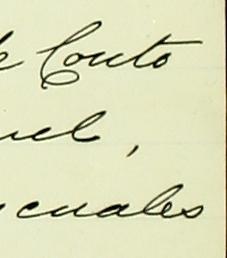 e Couto
uel,
cuales